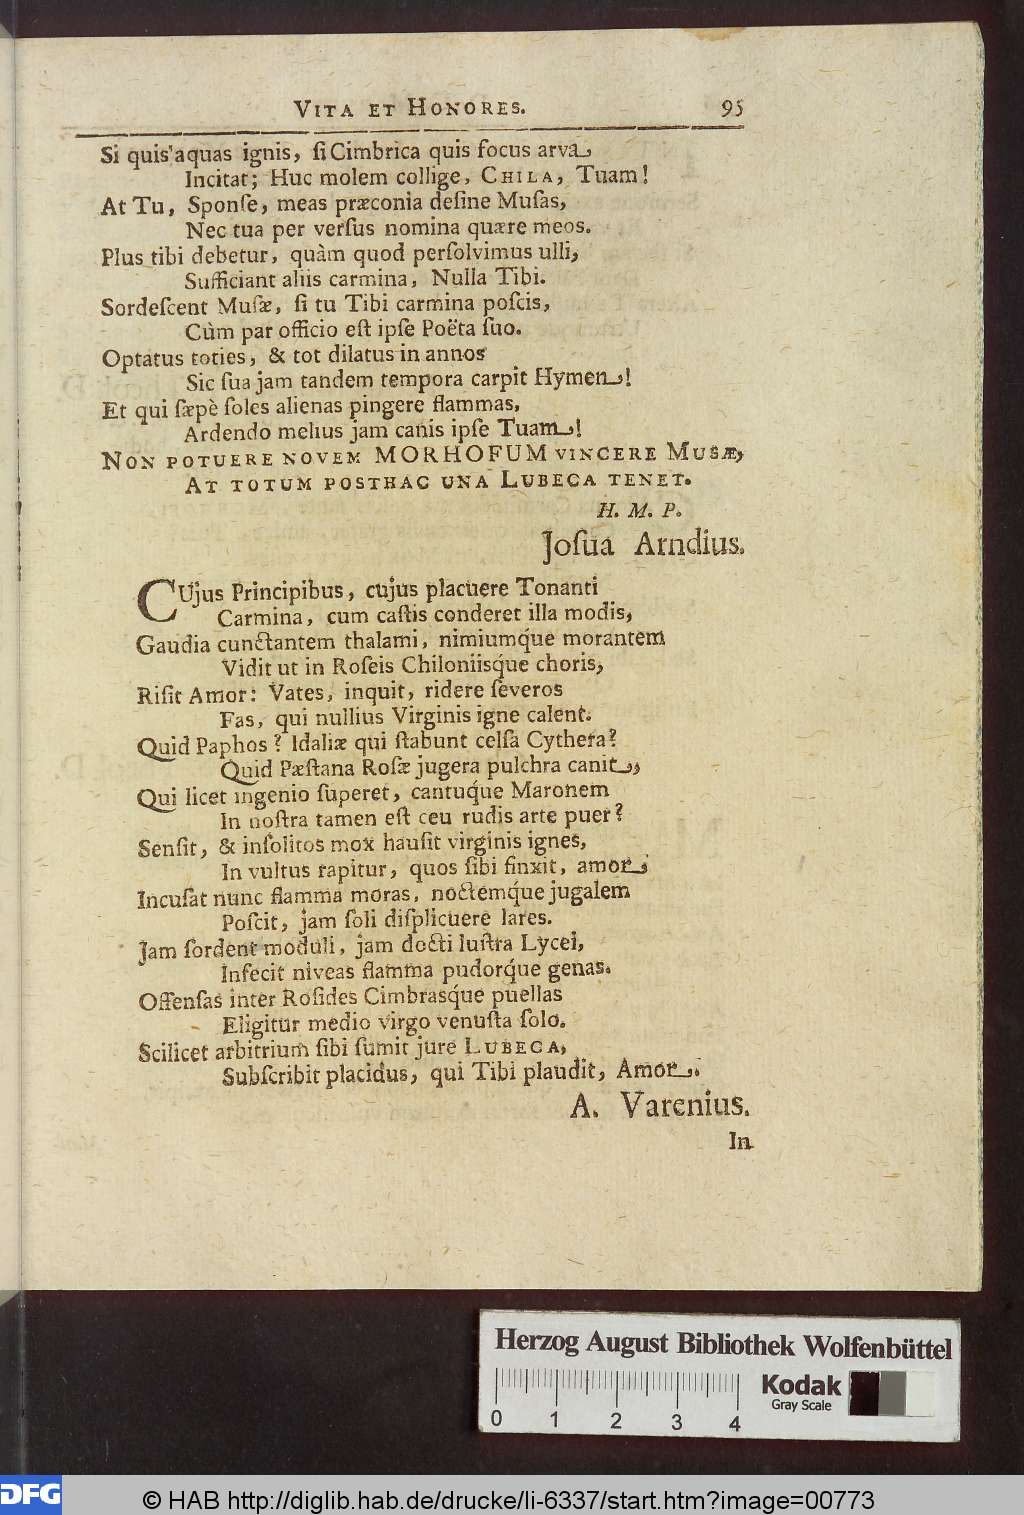 VITA ET HONORES. 95
Si quis'aquas ignis, ſi Cimbrica quis focus arva
Incitat; Huc molem collige, CHILA, Tuam!
At Tu, Sponſe, meas præconia deſine Muſas,
Nec tua per verſus nomina quære meos.
Plus tibi debetur, quàm quod perſolvimus ulli,
Sufficiant aliis carmina, Nulla Tibi.
Sordeſcent Muſæ, ſi tu Tibi carmina poſcis,
Cùm par officio eſt ipſe Poëta ſuo.
Optatus toties, & tot dilatus in annos
Sic ſua jam tandem tempora carpit Hymen!
Et qui ſæpè ſoles alienas pingere flammas,
Ardendo melius jam canis ipſe Tuam!
NON POTUERE NOVEM MORHOFUM VINCERE MUSÆ,
AT TOTUM POSTHAC UNA LUBECA TENET.
H. M. P.
Joſua Arndius.
CUjus Principibus, cujus placuere Tonanti
Carmina, cum caſtis conderet illa modis,
Gaudia cunctantem thalami, nimiumq́ue morantem
Vidit ut in Roſeis Chiloniisq́ue choris,
Riſit Amor: Vates, inquit, ridere ſeveros
Fas, qui nullius Virginis igne calent.
Quid Paphos? Idaliæ qui ſtabunt celſa Cythera?
Quid Pæſtana Roſæ jugera pulchra canit,
Qui licet ingenio ſuperet, cantuq́ue Maronem
In noſtra tamen eſt ceu rudis arte puer?
Senſit, & inſolitos mox hauſit virginis ignes,
In vultus rapitur, quos ſibi finxit, amor;
Incuſat nunc flamma moras, noctemq́ue jugalem
Poſcit, jam ſoli diſplicuere lares.
Jam ſordent moduli, jam docti luſtra Lycei,
Infecit niveas flamma pudorq́ue genas.
Offenſas inter Roſides Cimbrasq́ue puellas
Eligitur medio virgo venuſta ſolo.
Scilicet arbitrium ſibi ſumit jure LUBECA,
Subſcribit placidus, qui Tibi plaudit, Amor.
A. Varenius.
In
Herzog August Bibliothek Wolfenbüttel
Kodak
Gray Scale
0 1 2 3 4
DFG
© HAB http://diglib.hab.de/drucke/li-6337/start.htm?image=00773